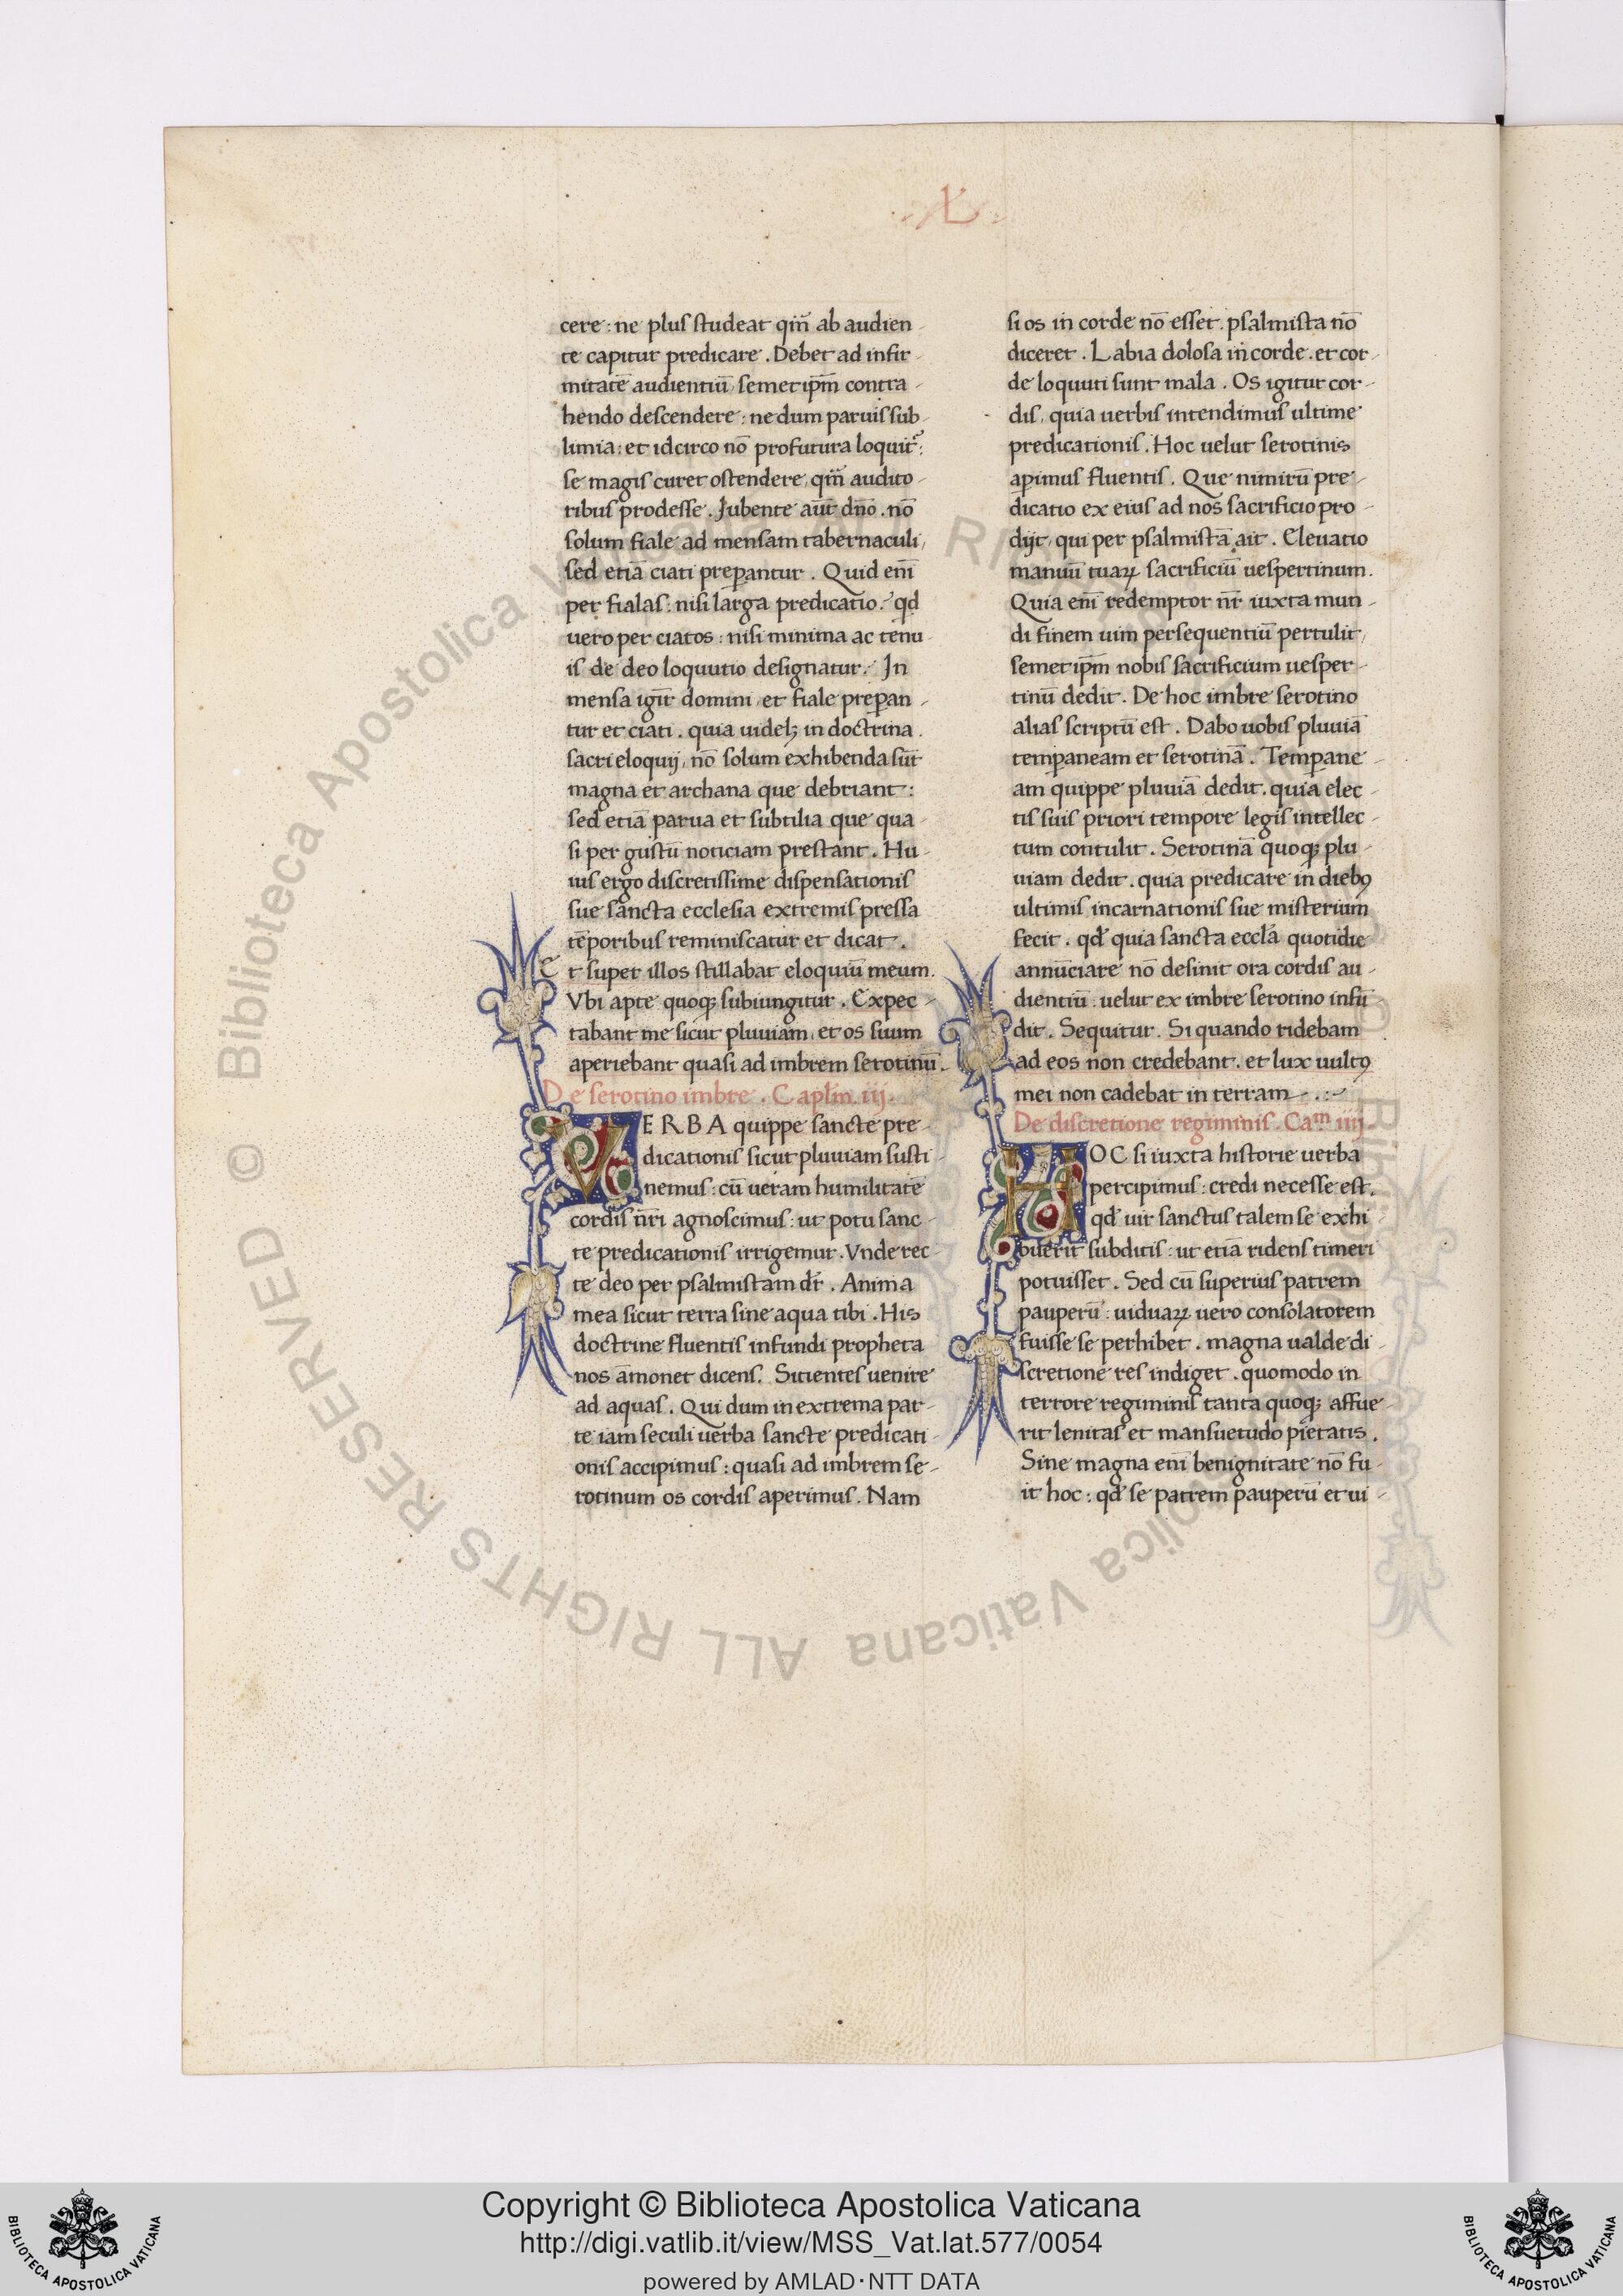 .XL.
cere : ne plus studeat qm̄ ab audien-
te capitur predicare . Debet ad infir-
mitatē audientiū semetip̄m contra-
hendo descendere : ne dum paruis sub-
limia : et idcirco nō profutura loquit᷑ :
se magis curet ostendere, qm̄ audito-
ribus prodesse . Jubente aūt dn̄o . nō
solum fiale ad mensam tabernaculi,
sed etiā ciati preparantur . Quid enī
per fialas : nisi larga predicatio . qd
uero per ciatos : nisi minima ac tenu
is de deo loquutio designatur . In
mensa igit̄ domini et fiale prepan-
tur et ciati . quia uidelꝫ in doctrina .
sacri eloquij, nō solum exhibenda sūt
magna et archana que debriant :
sed etiā parua et subtilia que qua-
si per gustū noticiam prestant . Hu-
ius ergo discretissime dispensationis
sue sancta ecclesia extremis pressa
tēporibus reminiscatur et dicat .
Et super illos stillabat eloquiū meum .
Vbi apte quoqꝫ subiungitur . Expec-
tabant me sicut pluuiam, et os suum
aperiebant quasi ad imbrem serotinū .
De serotino imbre . Caplm̄ iij .
VERBA quippe sancte pre-
dicationis sicut pluuiam susti-
nemus : cū ueram humilitatē
cordis nr̄i agnoscimus : ut potu sanc-
te predicationis irrigemur . Vnde rec
te deo per psalmistam dr̄ . Anima
mea sicut terra sine aqua tibi . His
doctrine fluentis infundi propheta
nos āmonet dicens . Sitientes uenite
ad aquas . Qui dum in extrema par-
te iam seculi uerba sancte predicati-
onis accipimus : quasi ad imbrem se-
rotinum os cordis aperimus . Nam
si os in corde nō esset . psalmista nō
diceret . Labia dolosa in corde . et cor-
de loquuti sunt mala . Os igitur cor-
dis, quia uerbis intendimus ultime
predicationis . Hoc uelut serotinis
apimus fluentis . Que nimirū pre-
dicatio ex eius ad nos sacrificio pro-
dijt, qui per psalmistā ait . Eleuatio
manuū tuaꝝ sacrificiū uespertinum .
Quia enī redemptor nr̄ iuxta mun-
di finem uim persequentiū pertulit,
semetip̄m nobis sacrificium uesper-
tinū dedit . De hoc imbre serotino
alias scriptū est . Dabo uobis pluuiā
tempaneam et serotinā . Tempane-
am quippe pluuiā dedit . quia elec-
tis suis priori tempore legis intellec-
tum contulit . Serotinā quoqꝫ plu-
uiam dedit . quia predicare in diebꝰ
ultimis incarnationis sue misterium
fecit . qd̄ quia sancta eccl̄a quotidie
annūciare nō desinit ora cordis au-
dientiū : uelut ex imbre serotino infū-
dit . Sequitur . Si quando ridebam
ad eos non credebant . et lux uultꝰ
mei non cadebat in terram . : ~
De discretione regiminis . Caᵐ iiij
HOC si iuxta historie uerba
percipimus : credi necesse est .
qd̄ uir sanctus talem se exhi-
buerit subditis : ut etiā ridens timeri
potuisset . Sed cū superius patrem
pauperū : uiduaꝝ uero consolatorem
fuisse se perhibet . magna ualde di-
scretione res indiget . quomodo in
terrore regiminis tanta quoqꝫ affue-
rit lenitas et mansuetudo pietatis .
Sine magna enī benignitate nō fu-
it hoc : qd̄ se patrem pauperū et ui-
© Biblioteca Apostolica Vaticana ALL RIGHTS RESERVED
Copyright © Biblioteca Apostolica Vaticana
http://digi.vatlib.it/view/MSS_Vat.lat.577/0054
powered by AMLAD·NTT DATA
BIBLIOTECA APOSTOLICA VATICANA
BIBLIOTECA APOSTOLICA VATICANA